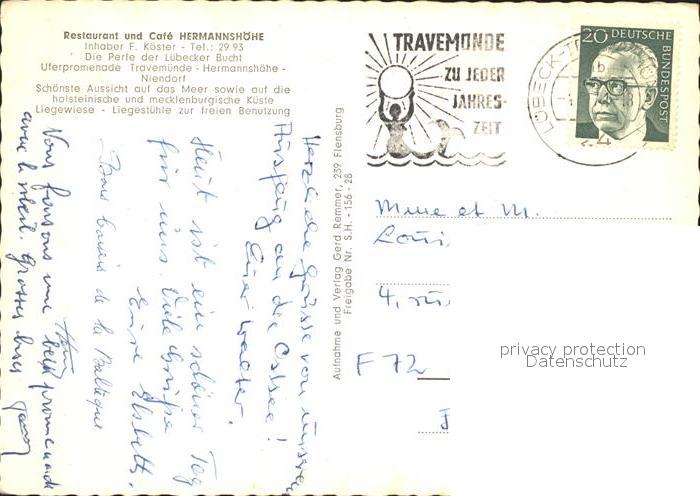 Restaurant und Café HERMANNSHÖHE
Inhaber F. Köster - Tel.: 29 93
Die Perle der Lübecker Bucht
Uferpromenade Travemünde - Hermannshöhe -
Niendorf
Schönste Aussicht auf das Meer sowie auf die
holsteinische und mecklenburgische Küste
Liegewiese - Liegestühle zur freien Benutzung
TRAVEMÜNDE
ZU JEDER
JAHRES-
ZEIT
LÜBECK-
b
24
20 DEUTSCHE
BUNDESPOST
Herzliche Grüsse von unserem
Ausflug an die Ostsee!
Euer Walter.
Heut ist ein schöner Tag
für uns. Viele Grüße
Eure Elsbeth.
Bons baisers de la Baltique
Nous faisons une belle promenade
avec le soleil. Grosses bises
Aufnahme und Verlag Gerd Remmer, 239 Flensburg
Freigabe Nr. S.H. - 156 - 28
Mme et M.
Loui
4, ru
F 72
privacy protection
Datenschutz